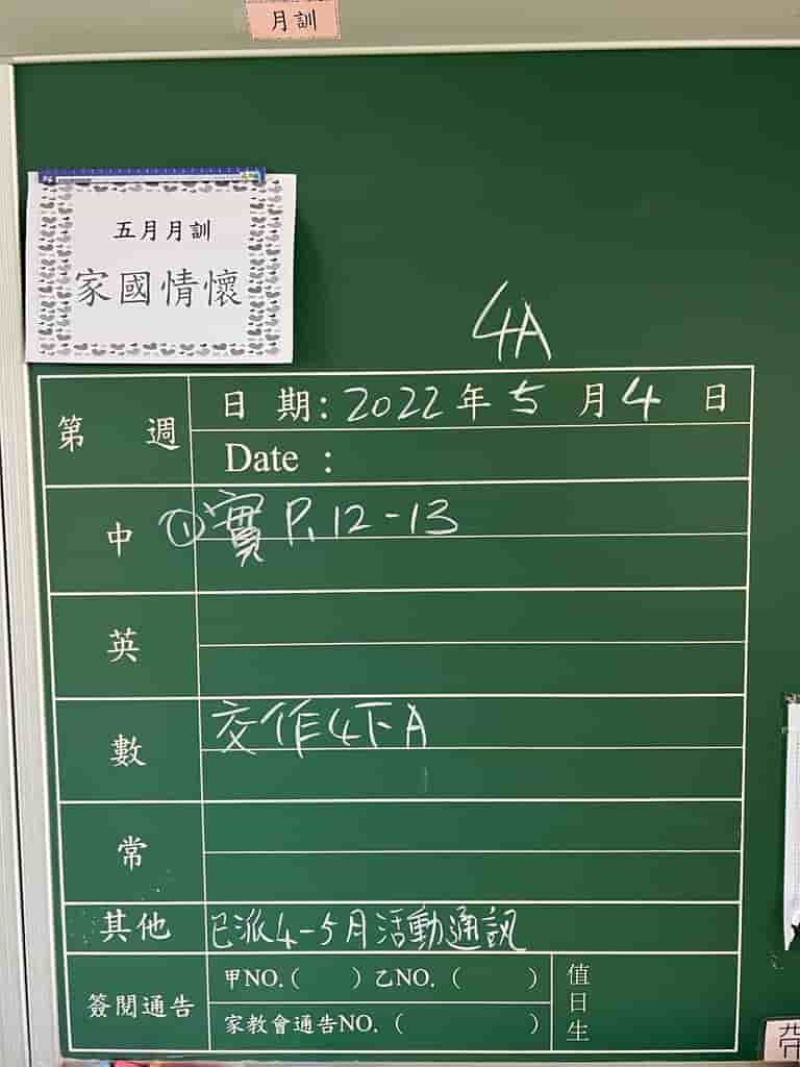 月訓
五月月訓
家國情懷
4A
第 週
日 期: 2022年5月4日
Date :
中 ①實 P.12-13
英
數 交作4下A
常
其他 已派4-5月活動通訊
簽閱通告 甲NO.( ) 乙NO.( )
家教會通告NO.( )
值日生